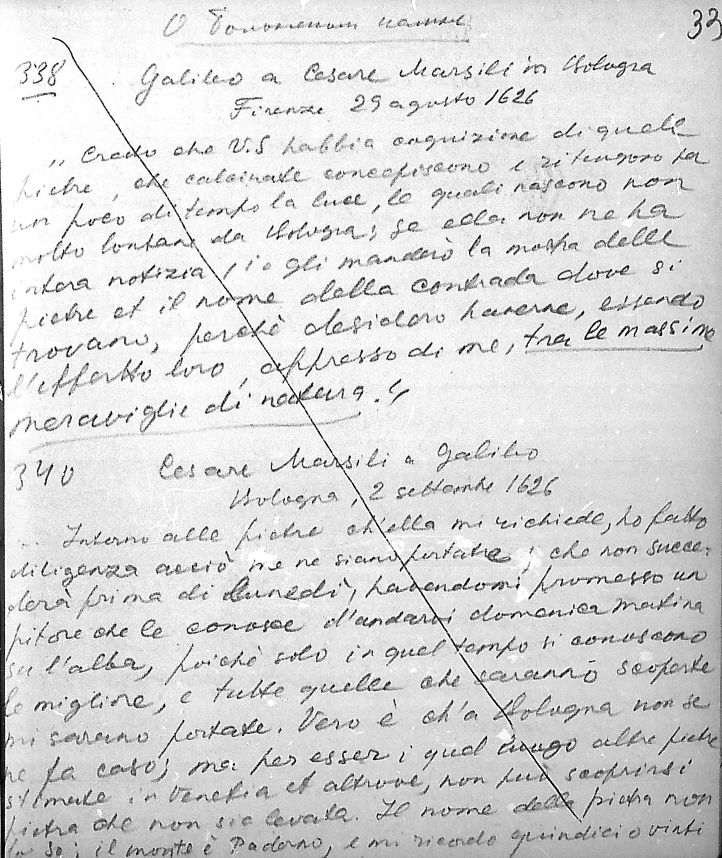 О Болонском камне
33
338 Galileo a Cesare Marsili in Bologna
Firenze 29 agosto 1626
„ Credo che V.S habbia cognizione di quelle
pietre, che calcinate concepiscono e ritengono per
un poco di tempo la luce, le quali nascono non
molto lontane da Bologna; se ella non ne ha
intera notizia, io gli manderò la mostra delle
pietre et il nome della contrada dove si
trovano, perchè desidero haverne, essendo
l'effetto loro, appresso di me, tra le massime
meraviglie di natura.“
340 Cesare Marsili a Galileo
Bologna, 2 settembre 1626
... Intorno alle pietre ch'ella mi richiede, ho fatto
diligenza acciò me ne siano portate; che non succe-
derà prima di Lunedì, havendomi promesso un
pitore che le conosce d'andarvi domenica matina
su l'alba, poichè solo in quel tempo si conoscono
le migliore, e tutte quelle che saranno scoperte
mi sarano portate. Vero è ch'a Bologna non se
ne fa caso; ma per esser i quel luogo altre pietre
stimate in Venetia et altrove, non può scoprirsi
pietra che non sia levata. Il nome della pietra non
lo so; il monte è Paderno, e mi ricordo quindici o vinti